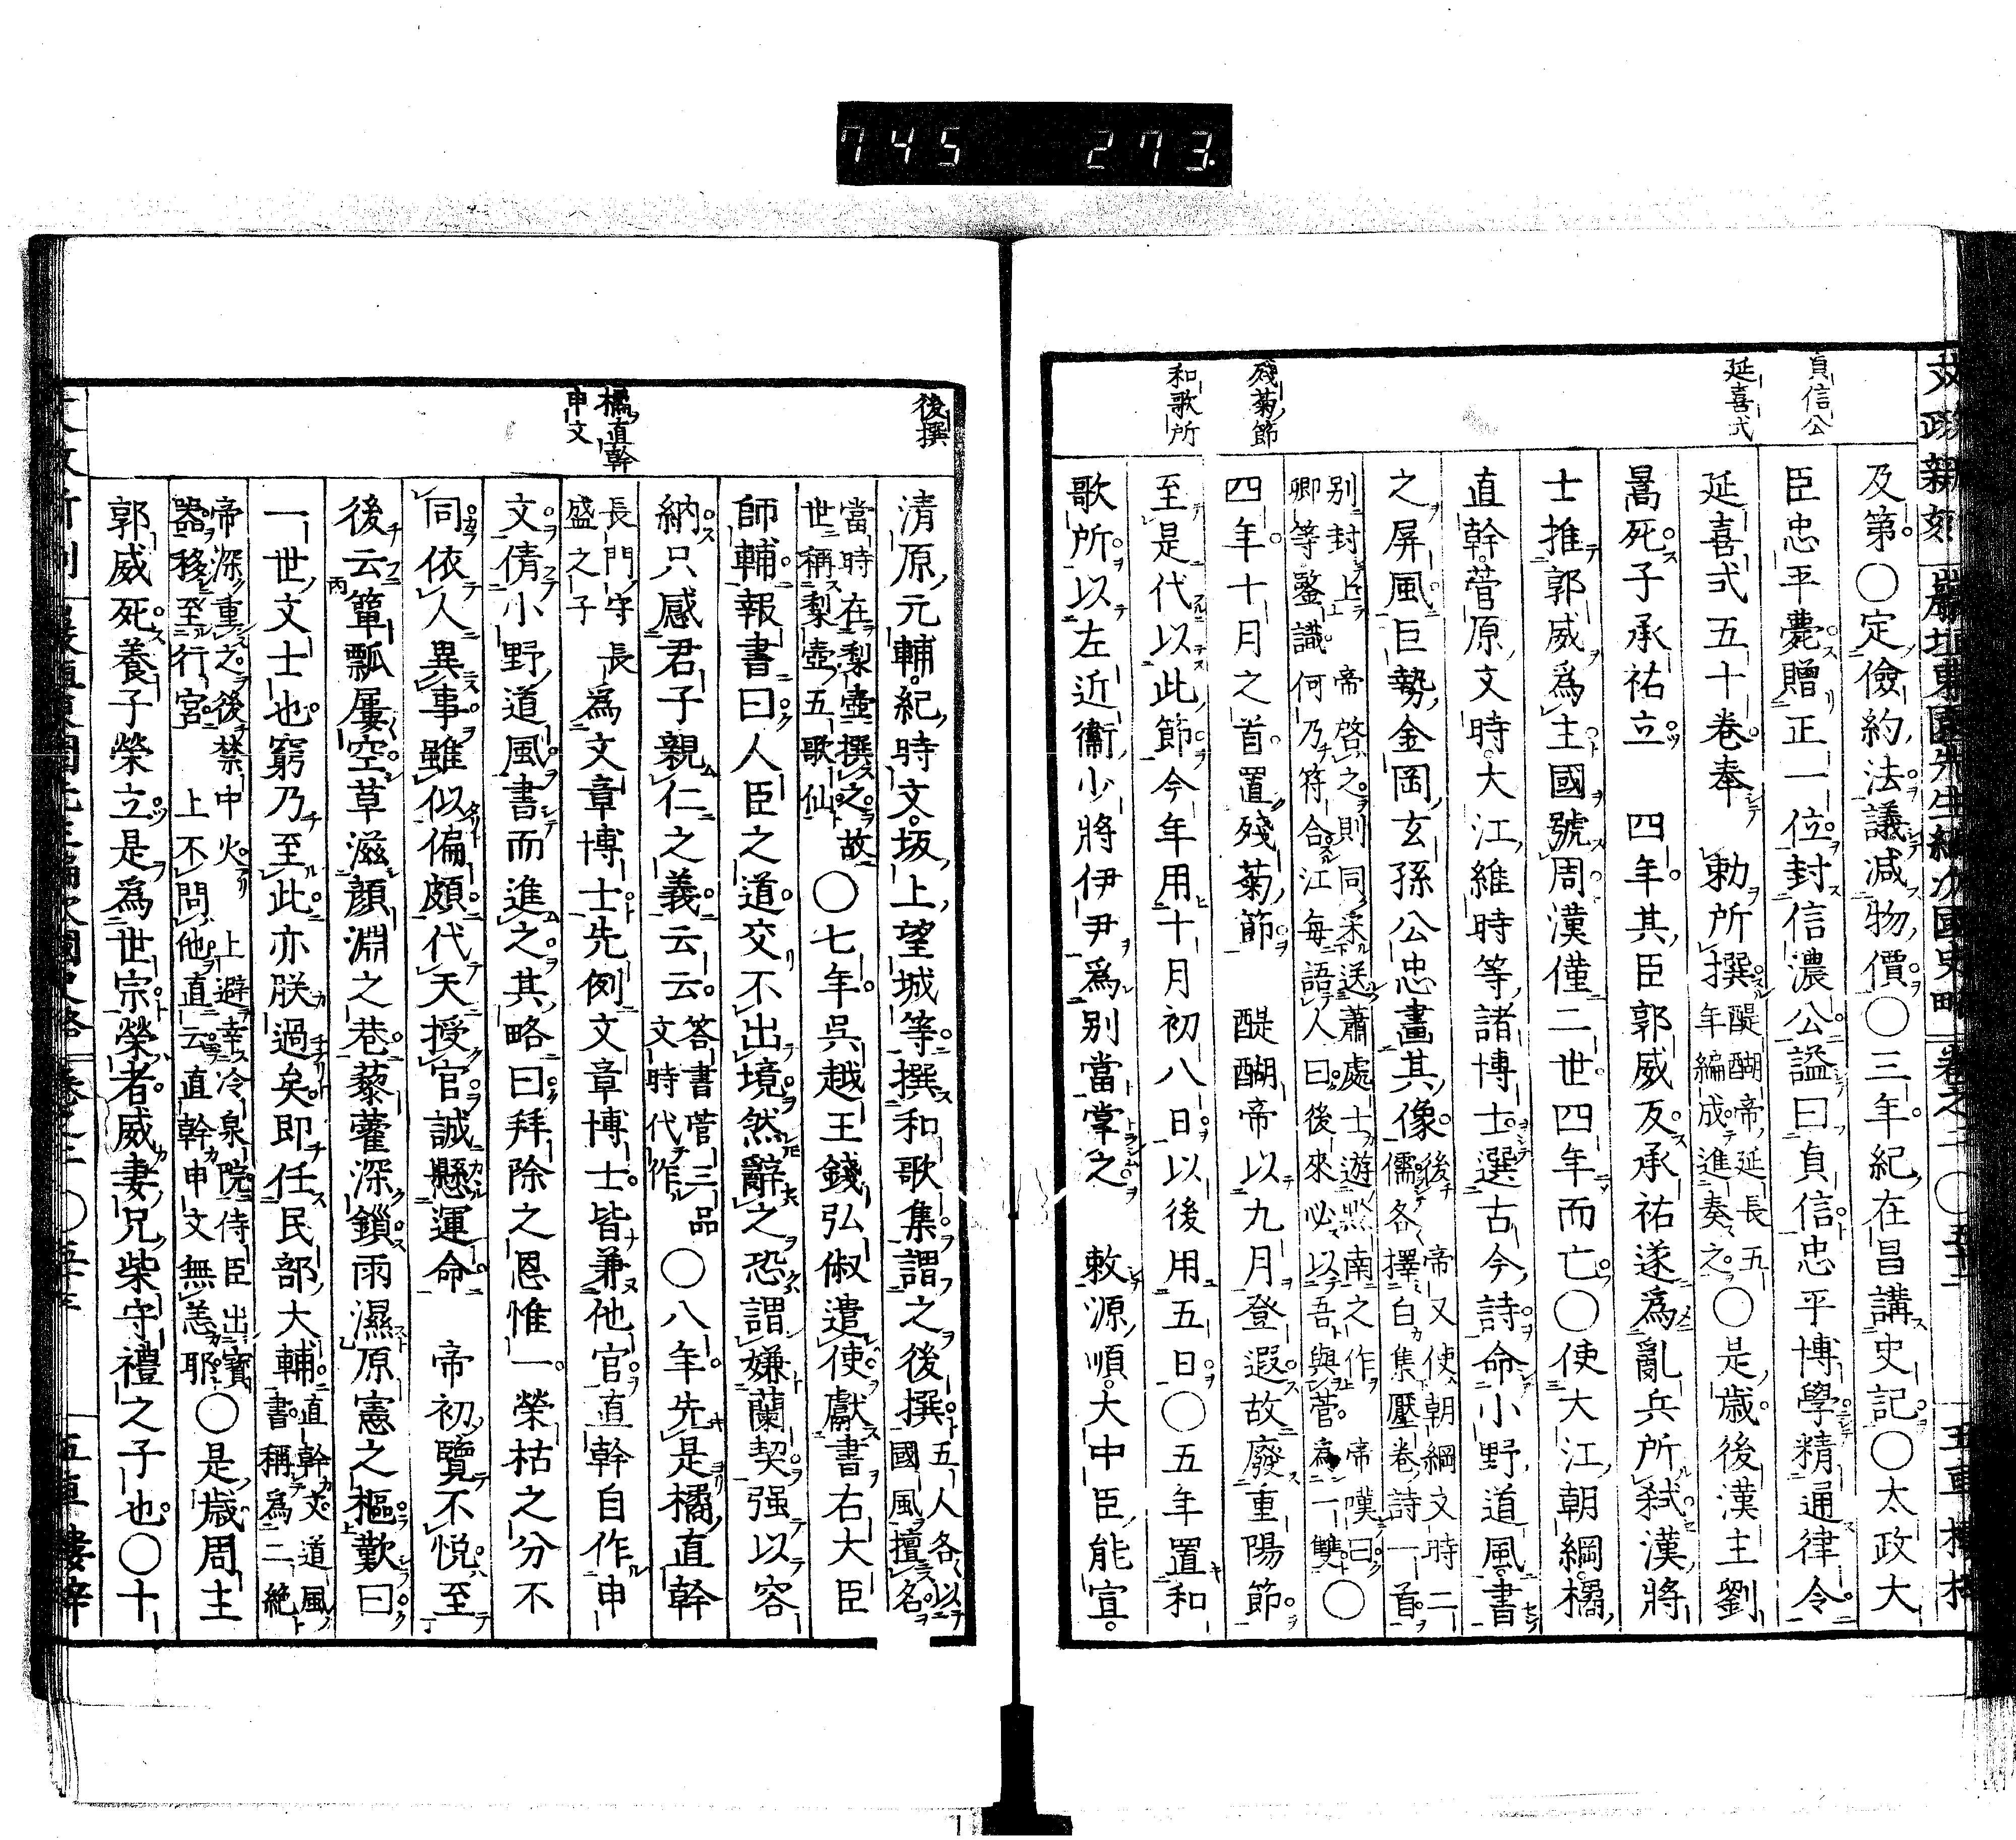 745 273.
貞信公
延喜式
殘菊節
和歌所
及第○定儉約法議減物價○三年紀在昌講史記○太政大
臣忠平薨贈正一位封信濃公謚曰貞信忠平博學精通律令
延喜式五十卷奉 勅所撰醍醐帝延長五年編成進奏之○是歲後漢主劉
暠死子承祐立 四年其臣郭威反承祐遂爲亂兵所弑漢將
士推郭威爲主國號周漢僅二世四年而亡○使大江朝綱橘
直幹菅原文時大江維時等諸博士選古今詩命小野道風書
之屏風巨勢金岡玄孫公忠畫其像後 帝又使朝綱文時二儒各擇白集壓卷詩一首
別封上 帝啓之則同采送蕭處士遊黔南之作 帝嘆曰卿等鑒識何乃符合江每語人曰後來必以吾與菅爲一雙○
四年十月之首置殘菊節 醍醐帝以九月登遐故廢重陽節
至是代以此節今年用十月初八日以後用五日○五年置和
歌所以左近衞少將伊尹爲別當掌之 敕源順大中臣能宣
後撰
橘直幹申文
清原元輔紀時文坂上望城等撰和歌集謂之後撰五人各以國風擅名
當時在梨壺撰之故世稱梨壺五歌仙○七年呉越王錢弘俶遣使獻書右大臣
師輔報書曰人臣之道交不出境然辭之恐謂嫌蘭契强以容
納只感君子親仁之義云云答書菅三品文時代作○八年先是橘直幹
長門守長盛之子爲文章博士先例文章博士皆兼他官直幹自作申
文倩小野道風書而進之其略曰拜除之恩惟一榮枯之分不
同依人異事雖似偏頗代天授官誠懸運命 帝初覽不悦至
後云簞瓢屢空草滋顏淵之巷藜藿深鎖雨濕原憲之樞歎曰
一世文士也窮乃至此亦朕過矣即任民部大輔直幹文道風書稱爲二絶
帝深重之後禁中火 上避幸冷泉院侍臣出寶器移至行宮 上不問他直云直幹申文無恙耶○是歲周主
郭威死養子榮立是爲世宗榮者威妻兄柴守禮之子也○十